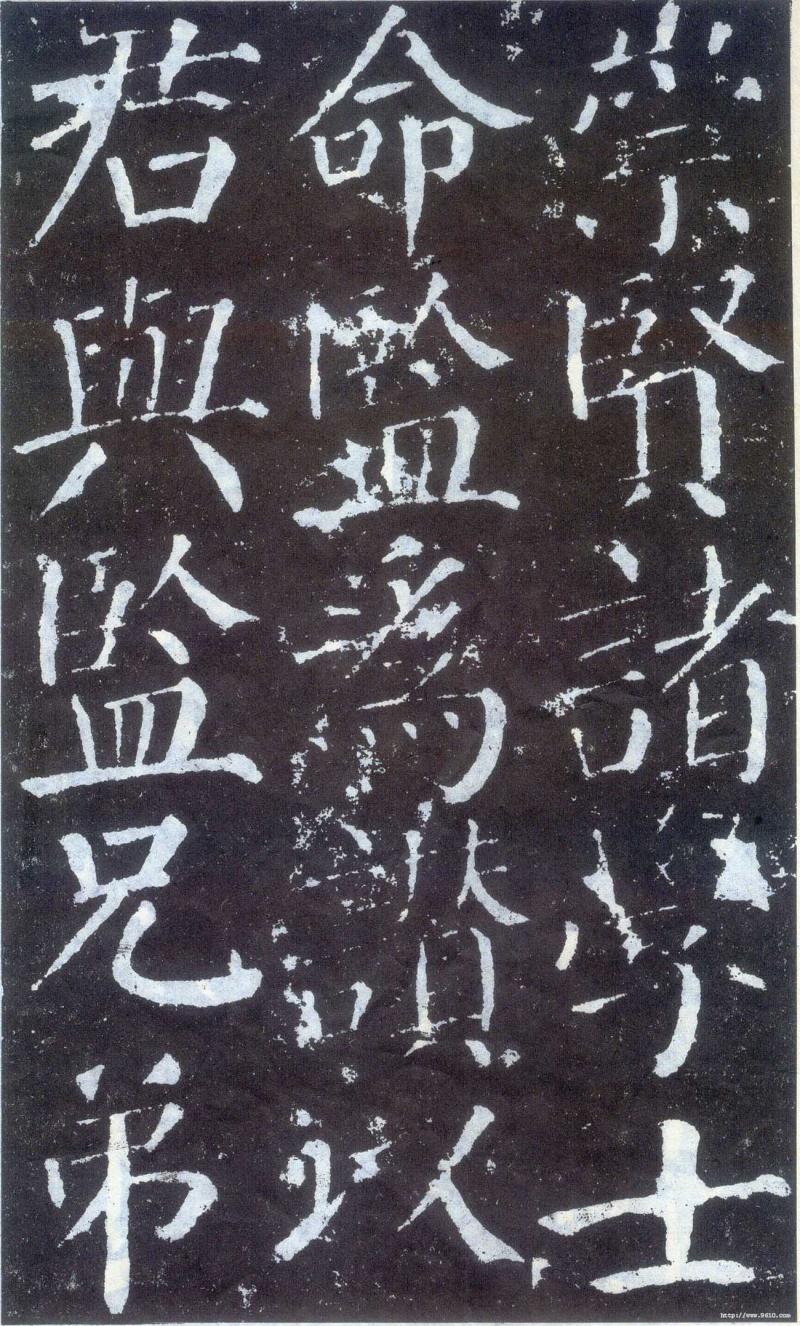 崇賢諸學士
命監爲讚以
君與監兄弟
http://www.9610.com